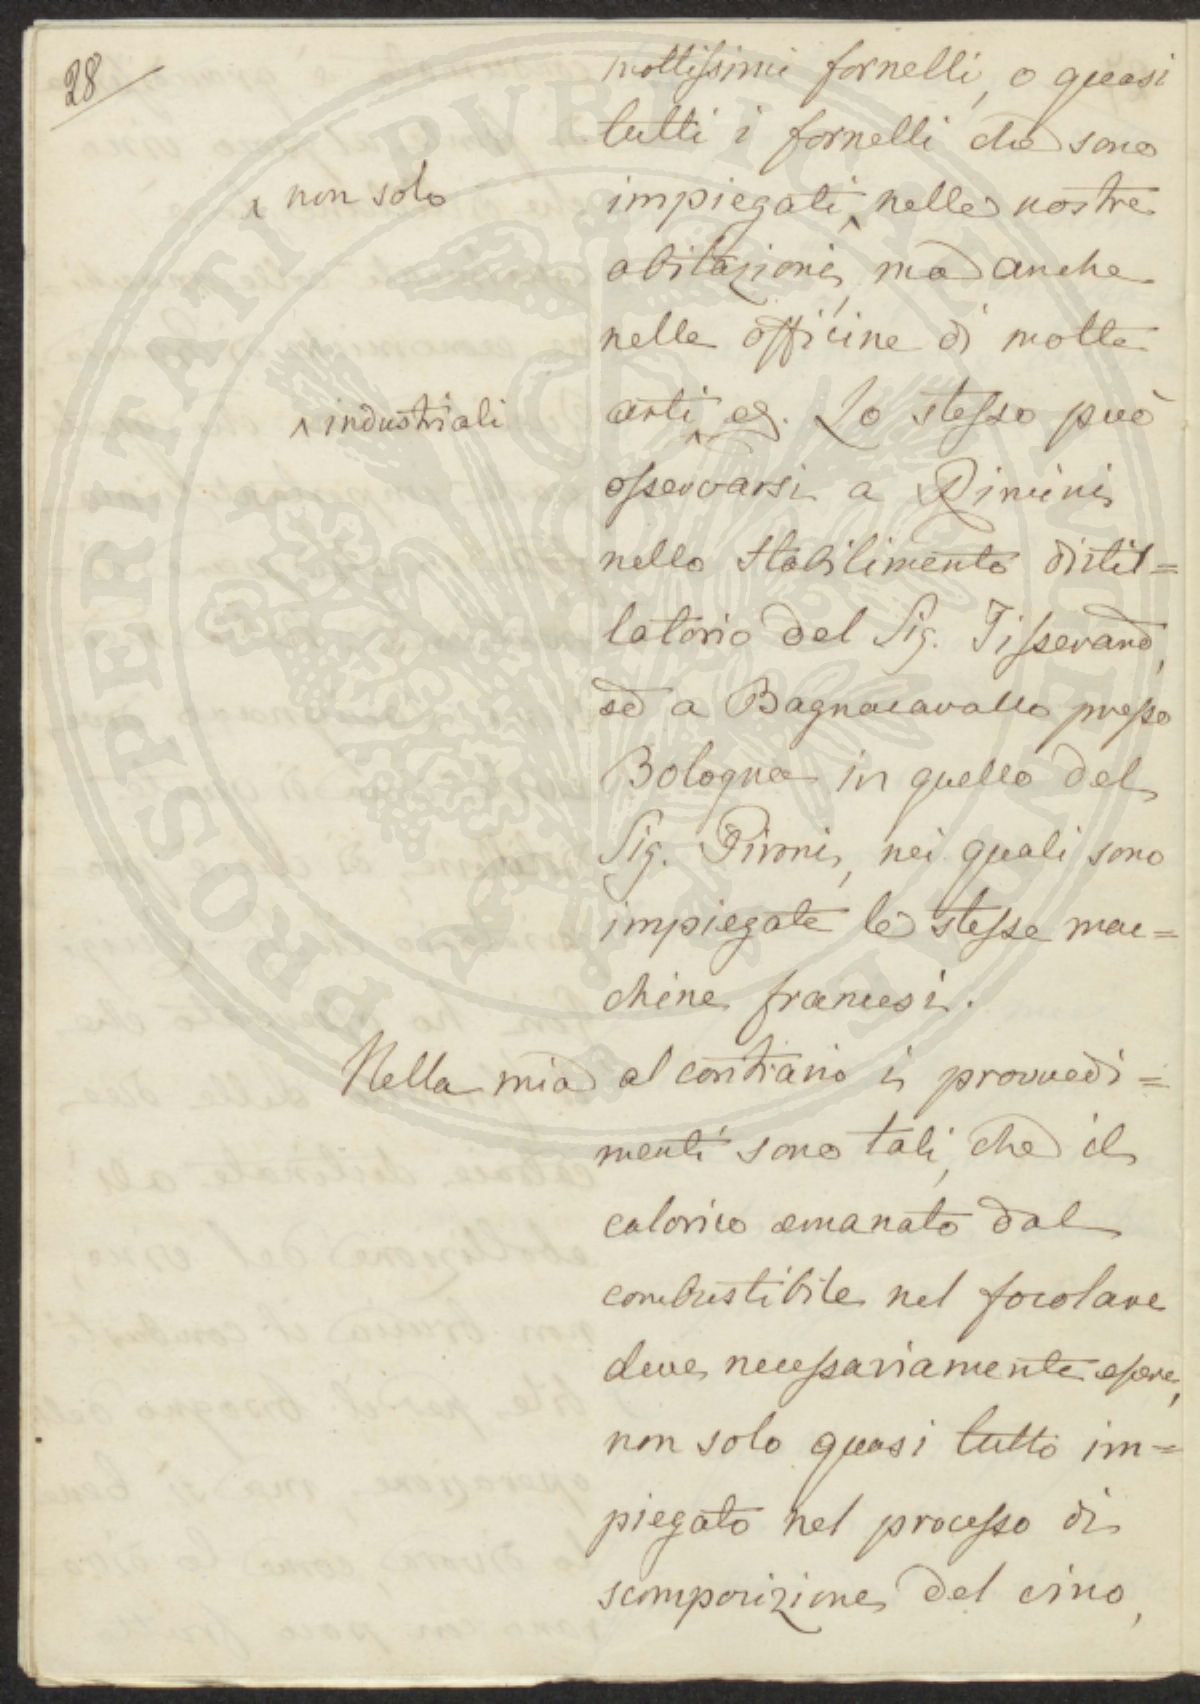 28
moltissimi fornelli, o quasi
tutti i fornelli che sono
^ non solo
impiegati ^ nelle nostre
abitazioni, ma anche
nelle officine di molte
^ industriali
arti ^ es. Lo stesso può
osservarsi a Rimini
nello Stabilimento distil=
latorio del Sig. Tisserand,
ed a Bagnacavallo presso
Bologna in quello del
Sig. Pironi, nei quali sono
impiegate le stesse mac=
chine francesi.
Nella mia al contrario i provvedi=
menti sono tali, che il
calorico emanato dal
combustibile nel focolare
deve necessariamente essere,
non solo quasi tutto im=
piegato nel processo di
scomposizione del vino,
PROSPERITATI PVBLICAE